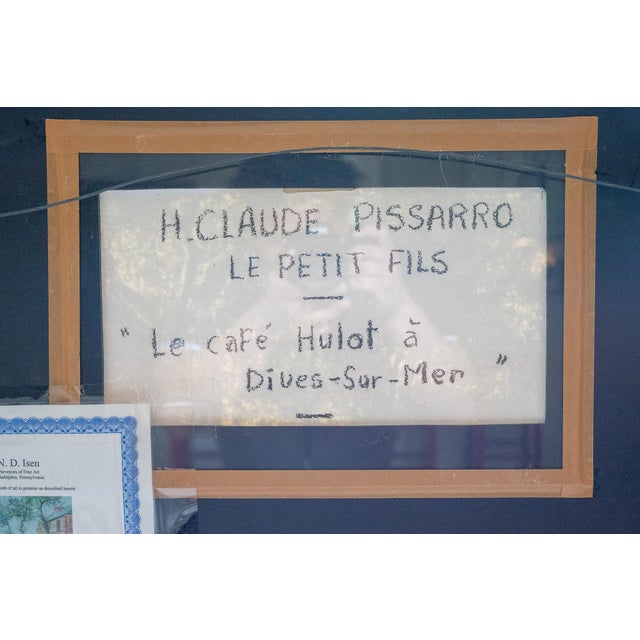 H. CLAUDE PISSARRO
LE PETIT FILS
" Le café Hulot à
Dives-Sur-Mer "
N. D. Isen
Purveyors of Fine Art
Philadelphia, Pennsylvania
work of art is genuine as described herein